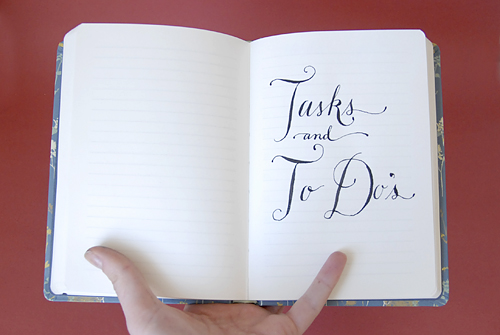 Tasks
and
To Do's